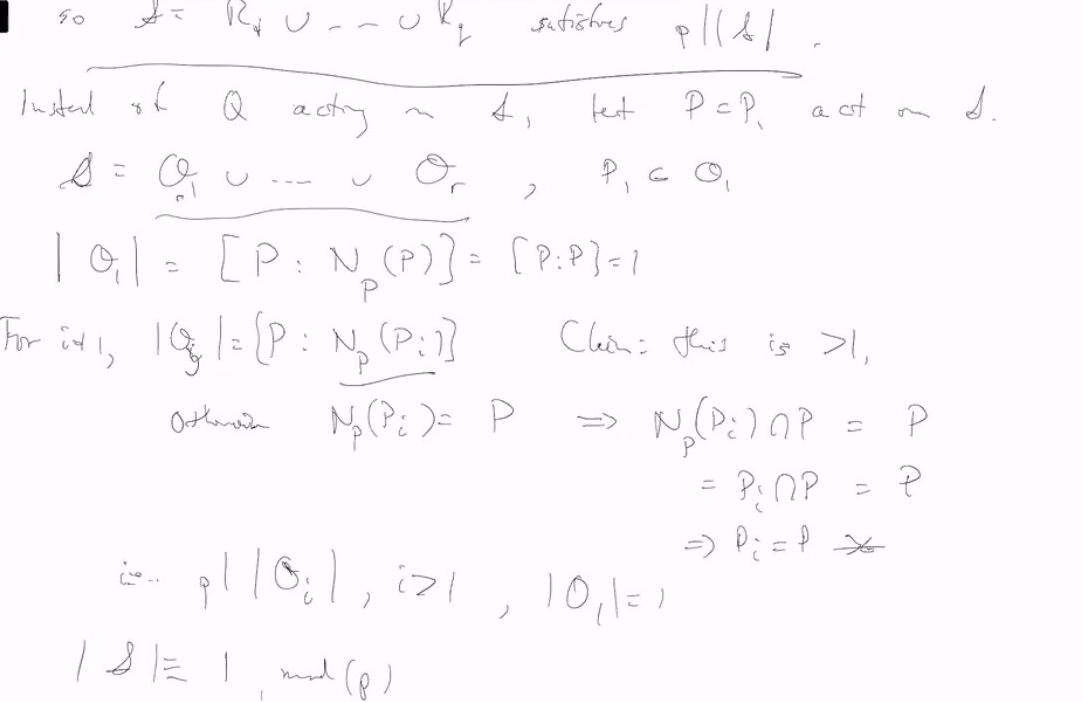 so 𝒮 = R₁ ∪ ... ∪ R_q satisfies p | |𝒮|.
Instead of Q acting on 𝒮, let P = P₁ act on 𝒮.
𝒮 = O₁ ∪ .... ∪ O_r , P₁ ∈ O₁
|O₁| = [P : N_P(P)] = [P:P] = 1
For i≠1, |O_i| = [P : N_P(P_i)] Claim: this is >1,
Otherwise N_P(P_i) = P ⇒ N_P(P_i) ∩ P = P
= P_i ∩ P = P
⇒ P_i = P ※
i.e. p | |O_i|, i>1 , |O₁| = 1
|𝒮| ≡ 1, mod (p)